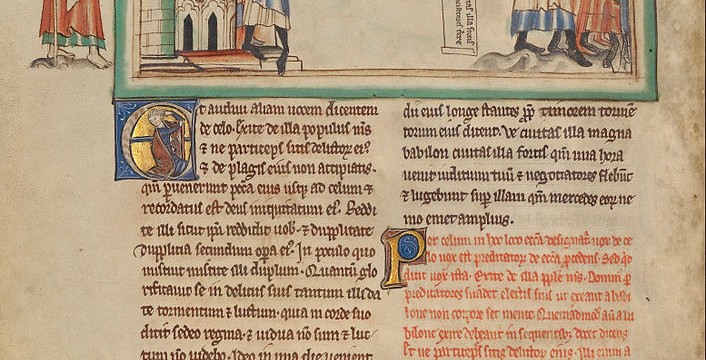 Et audiui aliam uocem dicentem
de celo. Exite de illa populus m̅s
& ne particeps sitis delictorꝫ ei᷒
& de plagis ei᷒ non accipiatis.
qm̅ ꝑuenerunt pcc̅a eius usqꝫ ad celum &
recordatus est deus iniquitatum ei᷒. Reddi
te illi sicut ip̅a reddidit uob̅. & dupplicate
Dupplicia secundum opa̅ ei᷒. In poculo quo
miscuit miscete illi duplum. Quantū glo
rificauit se in deliciis fuit tantum illi da
te tormentum & luctum. quia in corde suo
dicit sedeo regina. & uidua nō sum & luc
tum nō uidebo. Ideo in una die uenient
dii eius longe stantes ꝓp̅ timorem torme̅
torum eius dicent. Ve ciuitas illa magna
babilon ciuitas illa fortis qm̅ una hora
uenit iudicium tuū & negotiatores flebūt
& lugebunt sup̅ illam qm̅ merces eorꝫ ne
mo emet amplius.
Per celum in hoc loco ecc̅a designat᷑. uox de ce
lo uox est predicatorꝫ de ecc̅a ꝓcedens. Sed q̊
dicit uox ista. Exite de illa pp̅le m̅s. Domin᷒ ꝑ
predicatores suadet electis suis ut exeant a babi
lone non corpore set mente. Quemadmod̅ aū a ba
bilone exire debeant in sequentib᷒ docet dicens
Et ne participes sitis delictorꝫ eius.